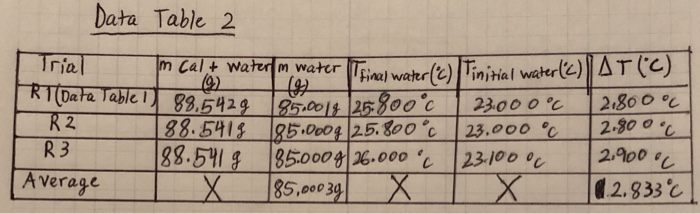 Data Table 2
Trial m Cal + water (g) m water (g) Tfinal water (°C) Tinitial water (°C) ΔT (°C)
R1 (Data Table 1) 88.542g 85.001g 25.800°C 23.000°C 2.800°C
R2 88.541g 85.000g 25.800°C 23.000°C 2.800°C
R3 88.541g 85.000g 26.000°C 23.100°C 2.900°C
Average X 85,0003g X X 2.833°C